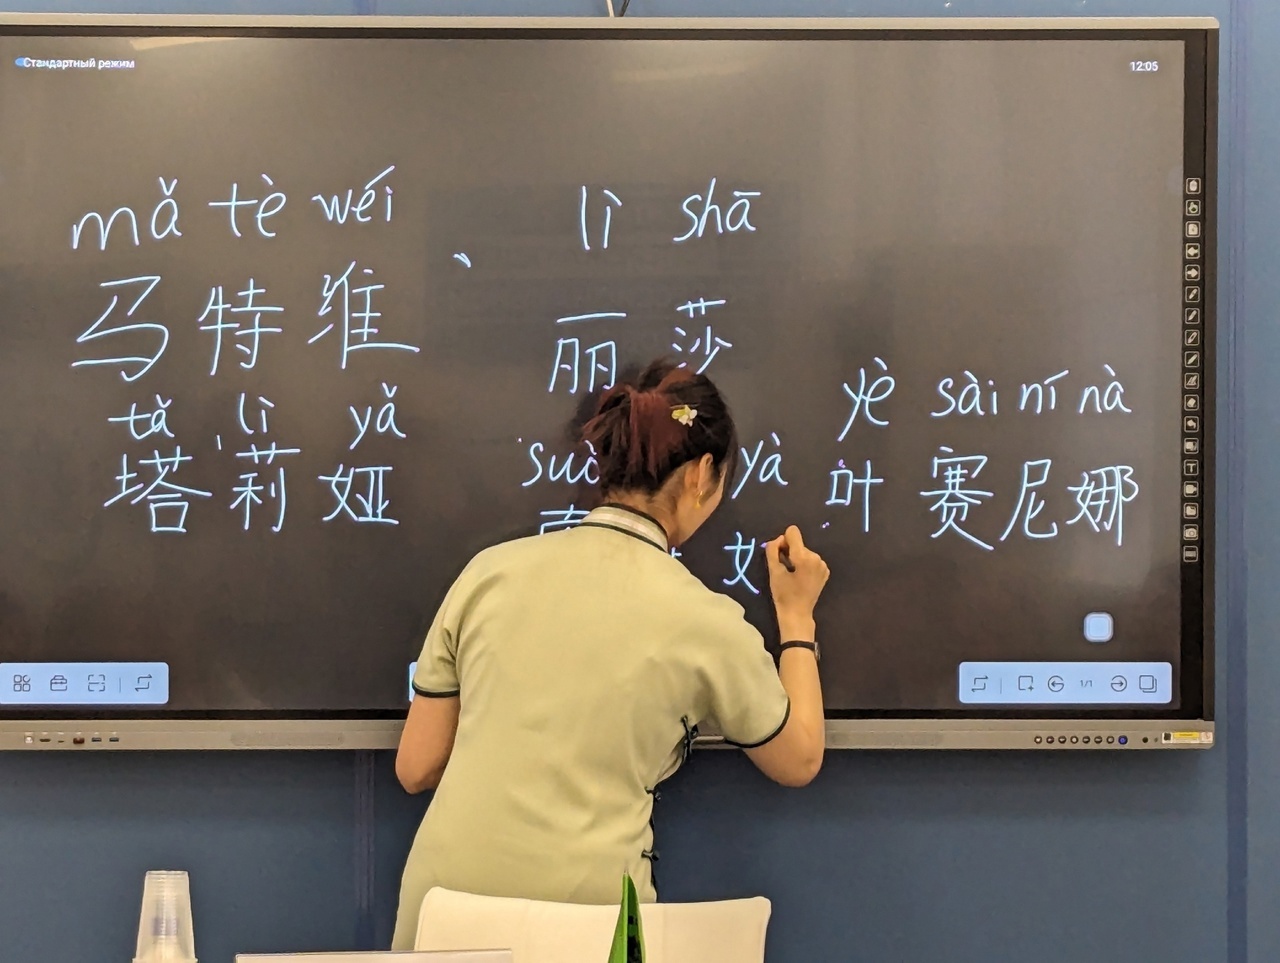 Стандартный режим
12:05
mǎ tè wéi 、
马特维
lì shā
丽莎
tǎ lì yǎ
塔莉娅
suǒ yà
yè sài ní nà
叶赛尼娜
1/1